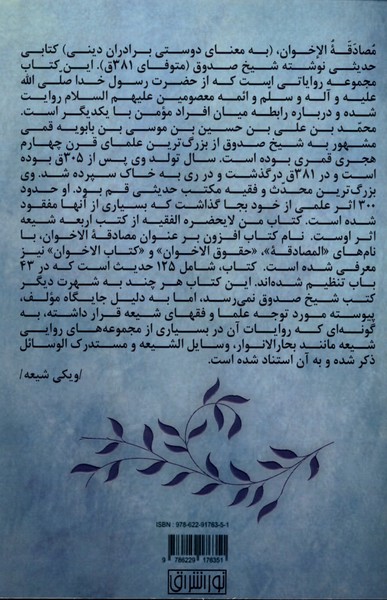 مُصادَقَةُ الإخوان، (به معنای دوستی برادران دینی) کتابی
حدیثی نوشته شیخ صدوق (متوفای ۳۸۱ق). این کتاب
مجموعه روایاتی است که از حضرت رسول خدا صلی الله
علیه و آله و سلّم و ائمه معصومین علیهم السلام روایت
شده و درباره رابطه میان افراد مؤمن با یکدیگر است.
محمد بن علی بن حسین بن موسی بن بابویه قمی
مشهور به شیخ صدوق از بزرگ‌ترین علمای قرن چهارم
هجری قمری بوده است. سال تولد وی پس از ۳۰۵ق بوده
است و در ۳۸۱ق درگذشت و در ری به خاک سپرده شد. وی
بزرگ‌ترین محدث و فقیه مکتب حدیثی قم بود. او حدود
۳۰۰ اثر علمی از خود بجا گذاشت که بسیاری از آنها مفقود
شده است. کتاب من لایحضره الفقیه از کتب اربعه شیعه
اثر اوست. نام کتاب افزون بر عنوان مصادقة الاخوان، با
نام‌های «المصادقة»، «حقوق الاخوان» و «کتاب الاخوان» نیز
معرفی شده است. کتاب، شامل ۱۲۵ حدیث است که در ۴۳
باب تنظیم شده‌اند. این کتاب هر چند به شهرت دیگر
کتب شیخ صدوق نمی‌رسد، اما به دلیل جایگاه مؤلف،
پیوسته مورد توجه علما و فقهای شیعه قرار داشته، به
گونه‌ای که روایات آن در بسیاری از مجموعه‌های روایی
شیعه مانند بحارالانوار، وسایل الشیعه و مستدرک الوسائل
ذکر شده و به آن استناد شده است.
/ویکی شیعه/
ISBN : 978-622-91763-5-1
9 786229 176351
نور اشراق